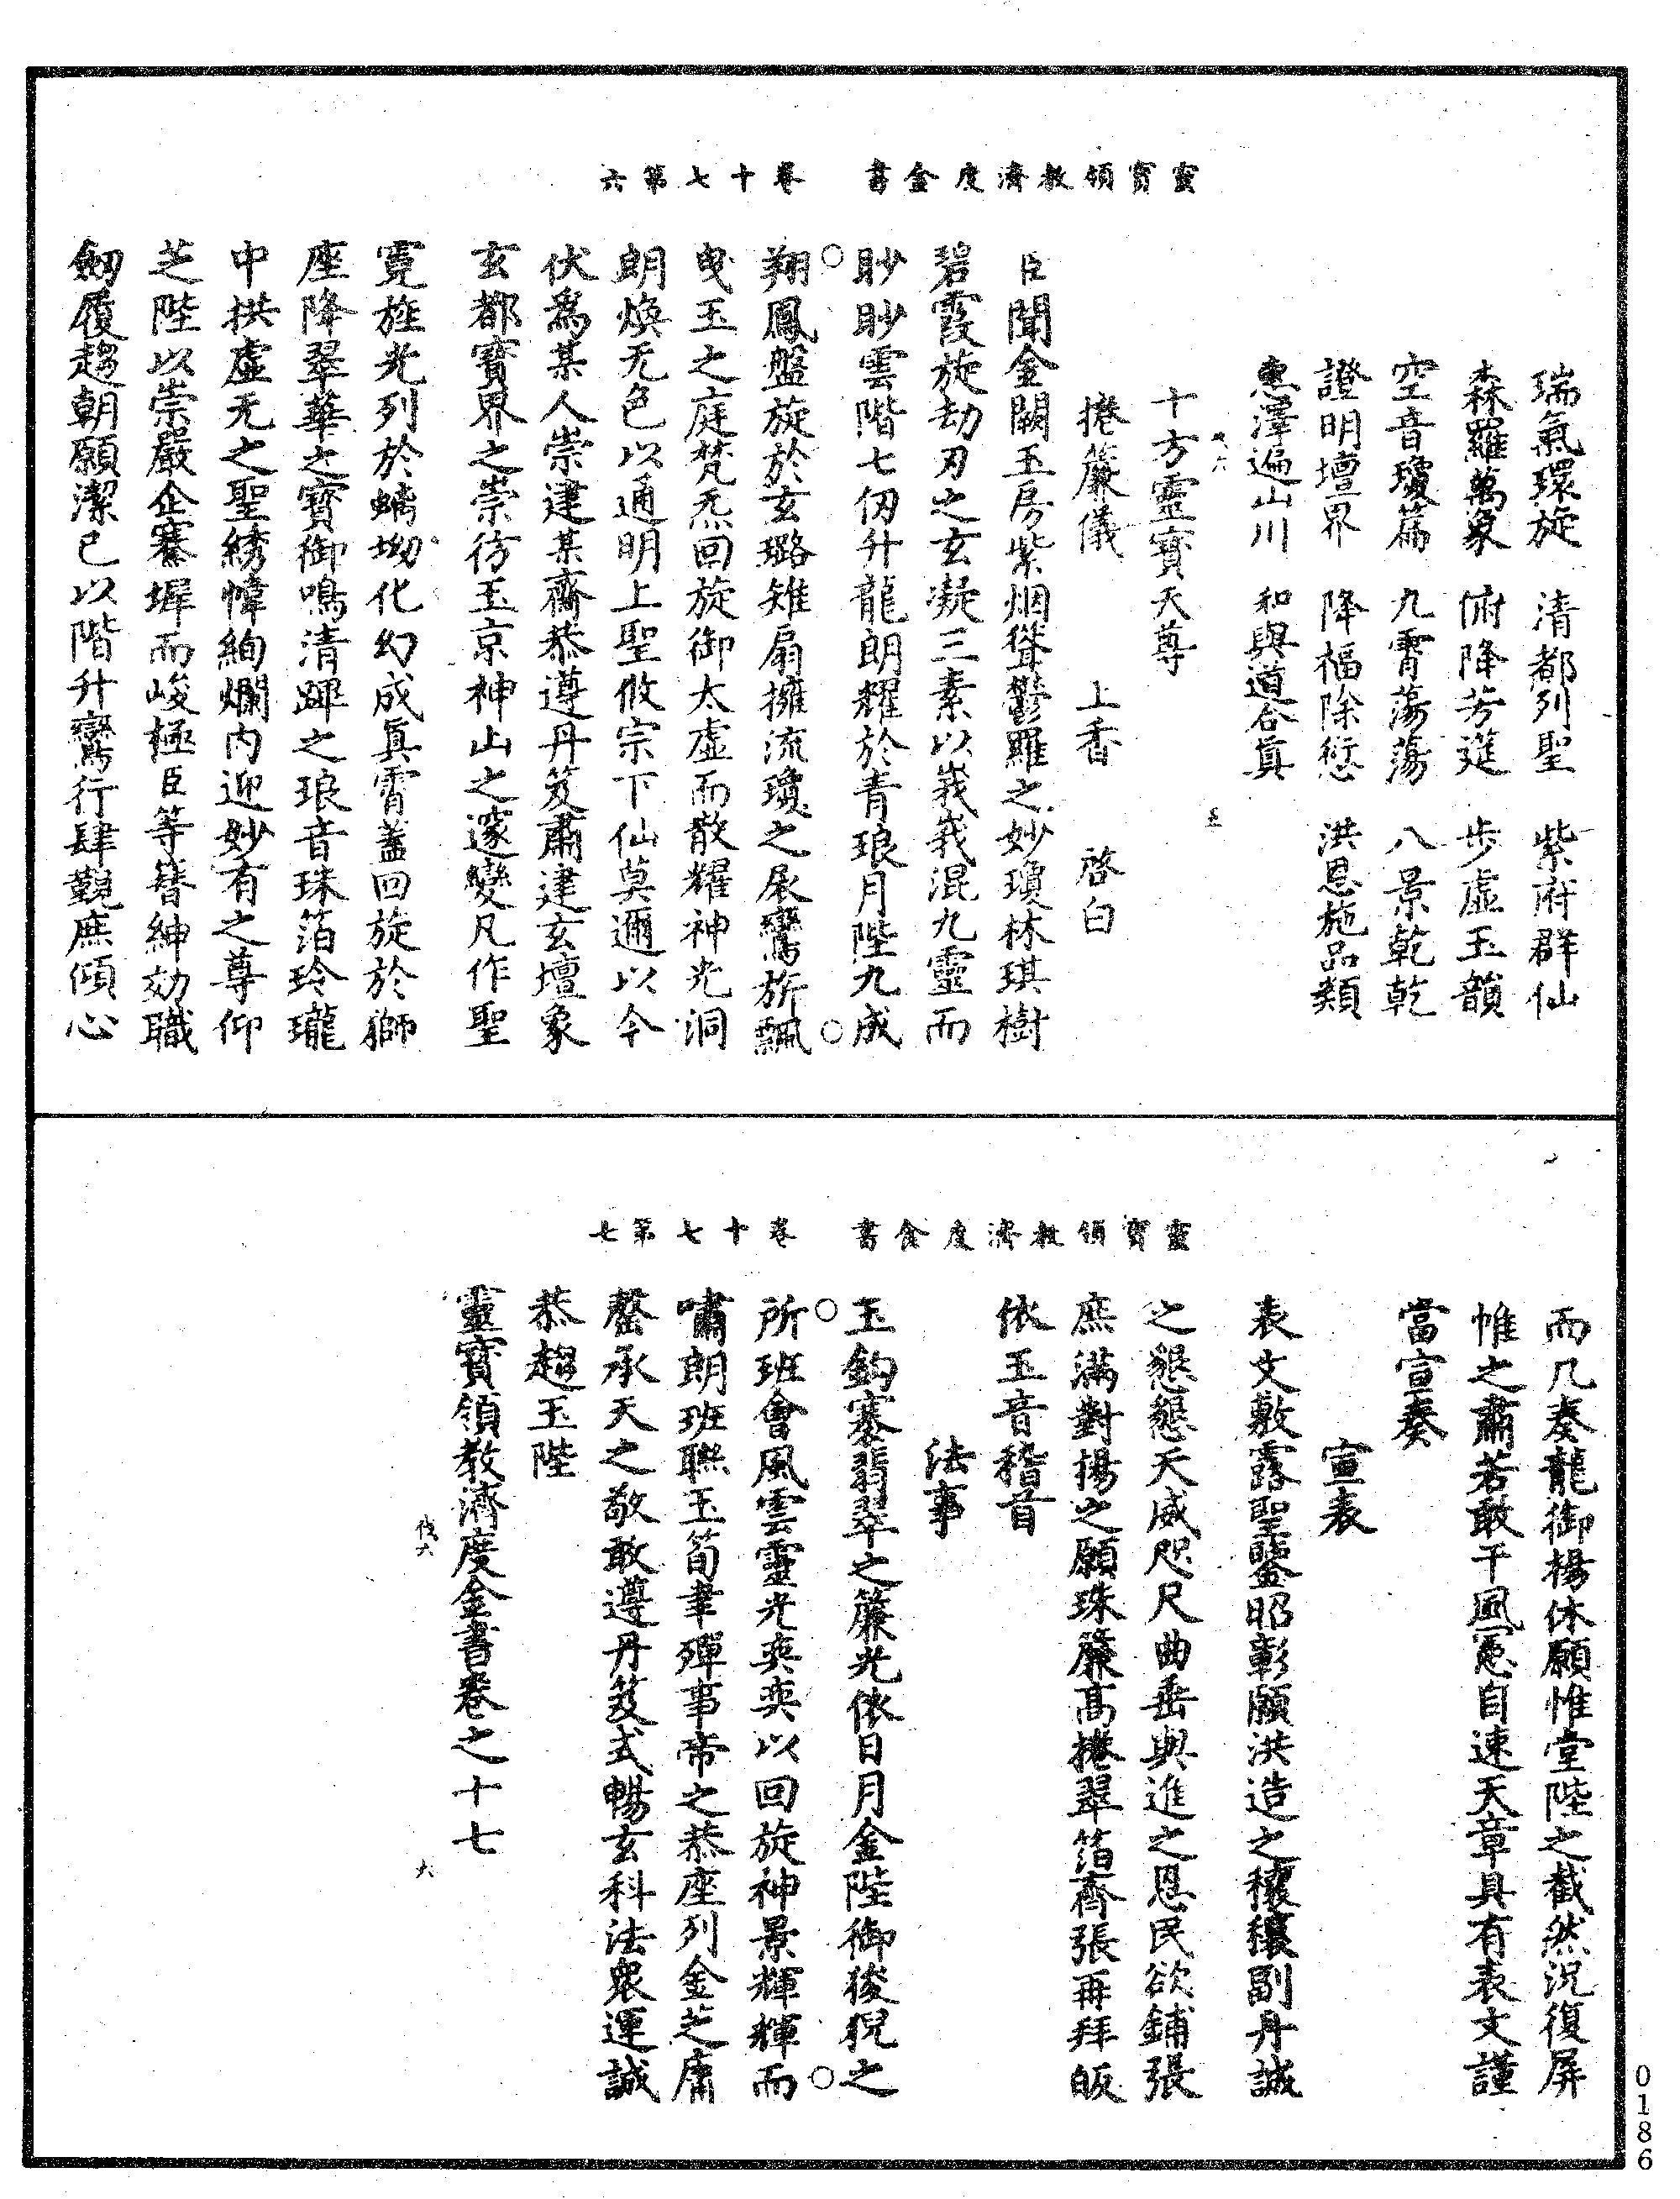 靈寶領教濟度金書　卷十七第六
瑞氣環旋　清都列聖　紫府群仙
森羅萬象　俯降芳筵　步虛玉韻
空音瓊篇　九霄蕩蕩　八景乾乾
證明壇界　降福除愆　洪恩施品類
惠澤遍山川　和與道合真
十方靈寶天尊
捲簾儀　上香　啓白
臣聞金闕玉房紫烟聳鬱羅之妙瓊林琪樹
碧霞旋劫刃之玄凝三素以峩峩混九靈而
眇眇雲階七仞升龍朗耀於青琅月陛九成
翔鳳盤旋於玄璐雉扇擁流瓊之扆鸞旂飄
曳玉之庭梵炁回旋御太虛而散耀神光洞
朗煥无色以通明上聖攸宗下仙莫邇以今
伏爲某人崇建某齋恭遵丹笈肅建玄壇象
玄都寳界之崇彷玉京神山之邃變凡作聖
霓旌光列於螭坳化幻成真霄蓋回旋於獅
座降翠華之寳御鳴清蹕之琅音珠箔玲瓏
中拱虛无之聖綉幃絢爛内迎妙有之尊仰
芝陛以崇嚴企寨墀而峻極臣等簪紳効職
劒履趨朝願潔己以階升鸞行肆覲庶傾心
靈寶領教濟度金書　卷十七第七
而几奏龍御楊休願惟堂陛之截然況復屏
帷之肅若敢干風憲自速天章具有表文謹
當宣奏
宣表
表文敷露聖鑒昭彰願洪造之穰穰副丹誠
之懇懇天威咫尺曲垂與進之恩民欲鋪張
庶滿對揚之願珠簾高捲翠箔齊張再拜皈
依玉音稽首
法事
玉鈎寨翡翠之簾光依日月金陛御狻猊之
所班會風雲靈光奕奕以回旋神景輝輝而
嘯朗班聯玉筍聿殫事帝之恭座列金芝庸
罄承天之敬敢遵丹笈式暢玄科法衆運誠
恭趨玉陛
靈寶領教濟度金書卷之十七
伐六　六
0186